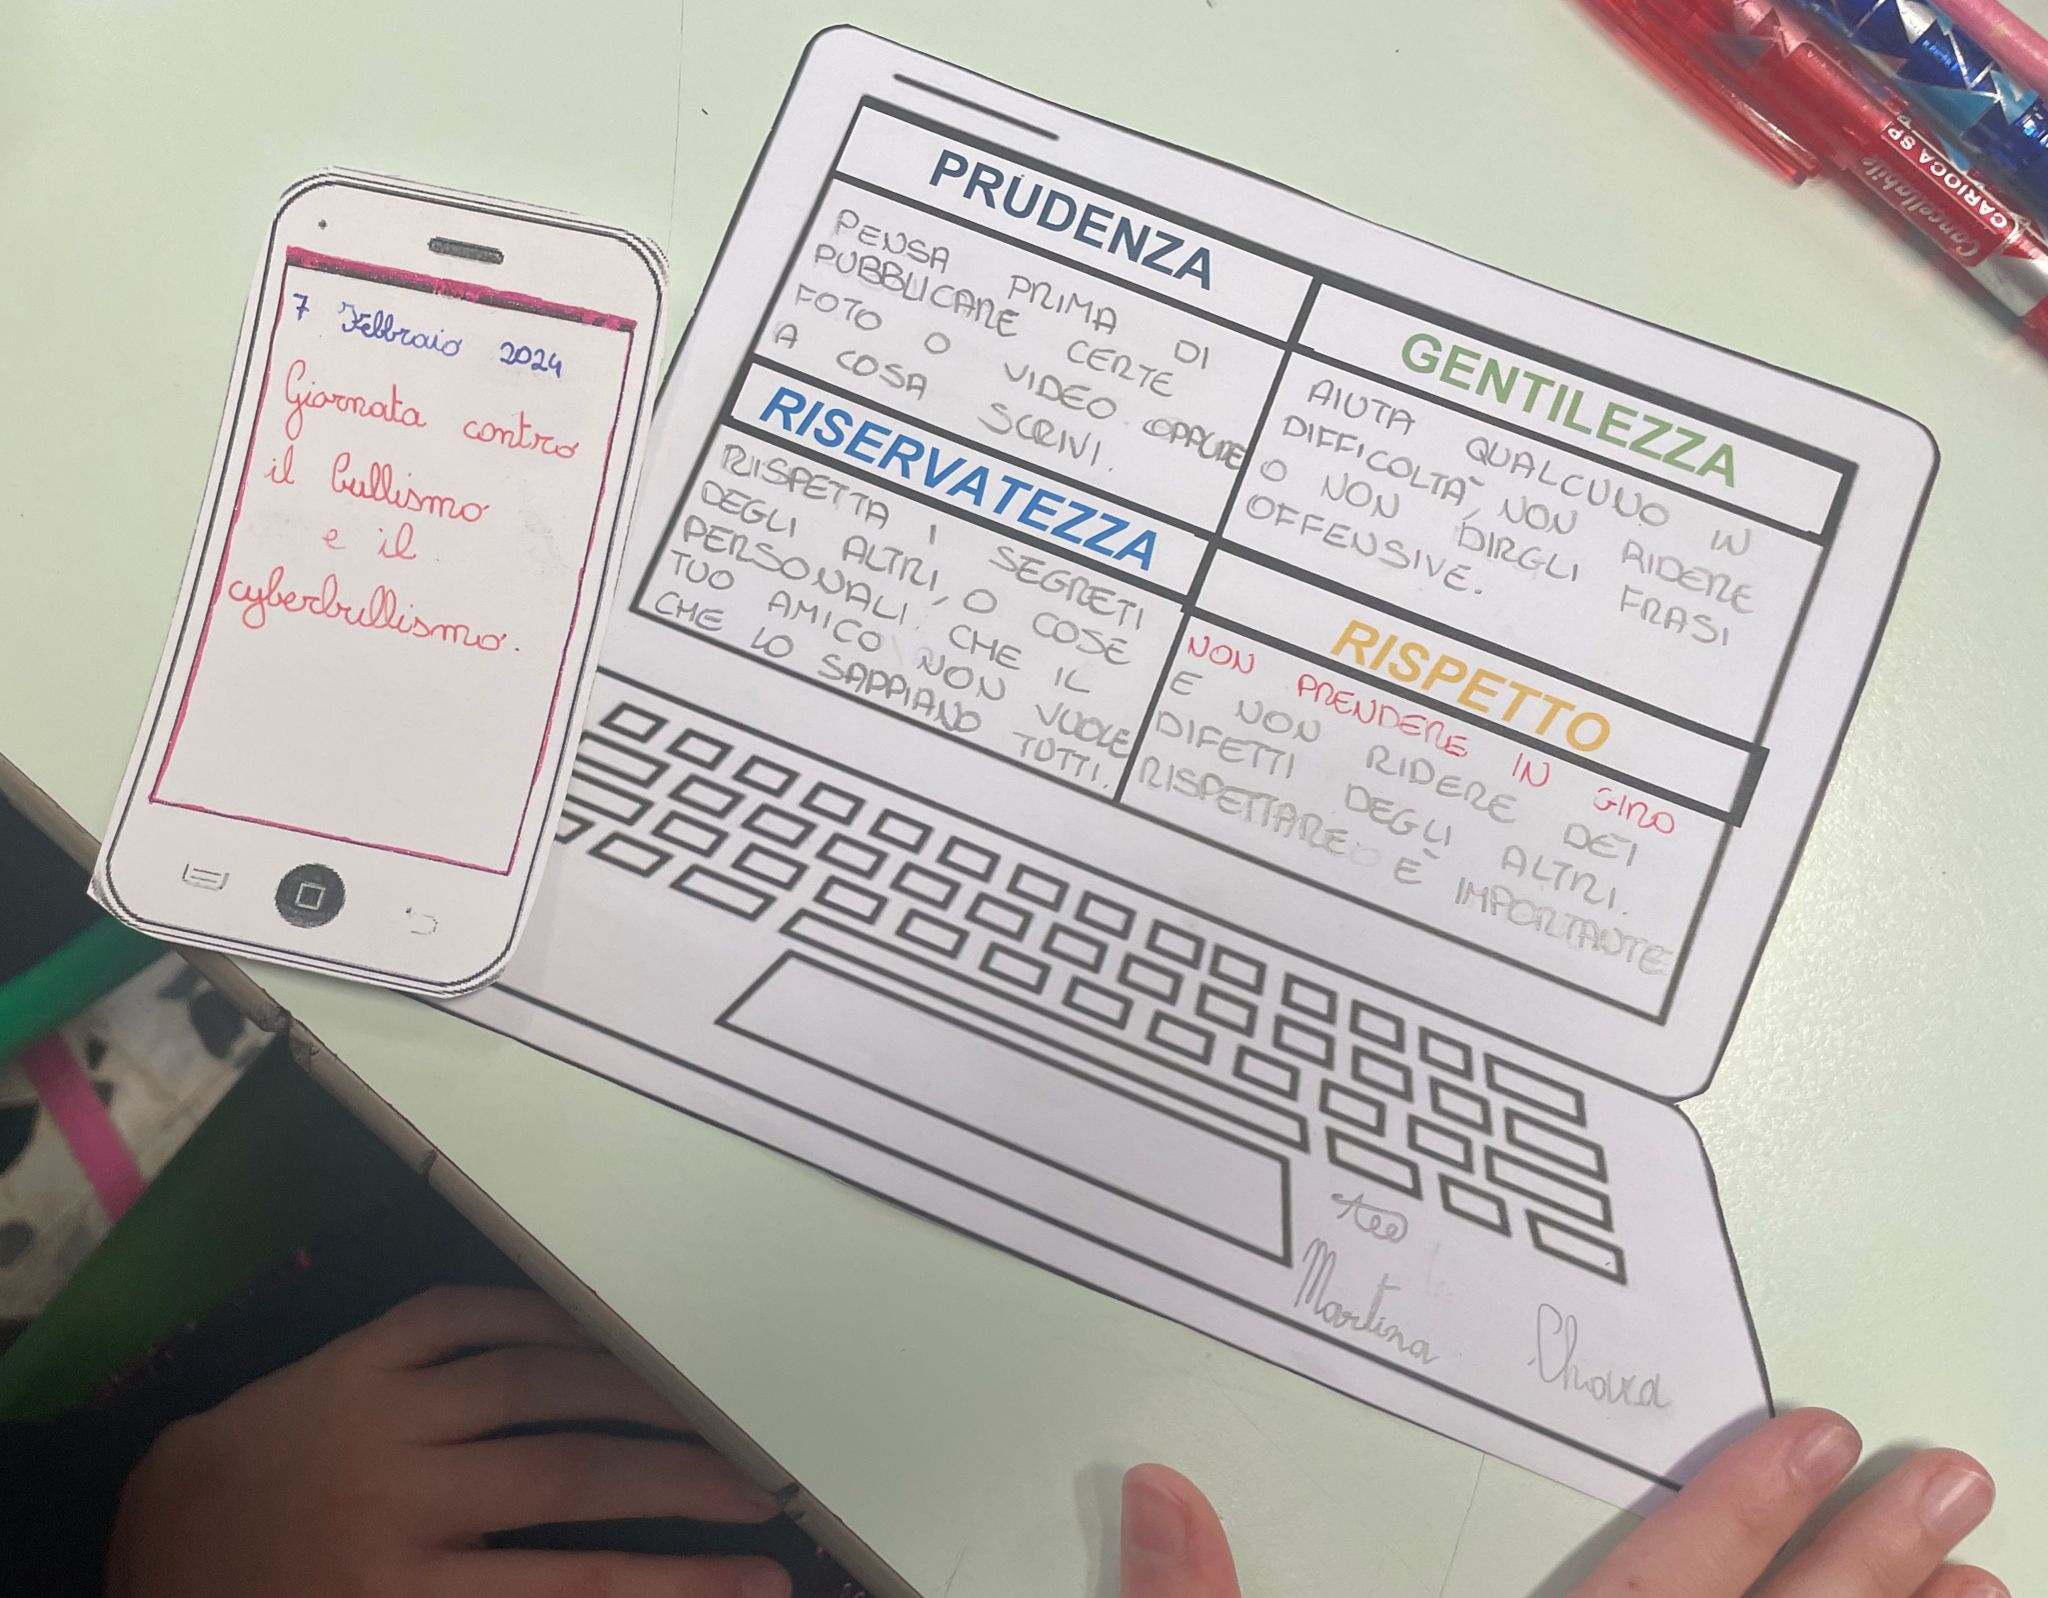 7 Febbraio 2024
Giornata contro
il bullismo
e il
cyberbullismo.
PRUDENZA
PENSA PRIMA DI
PUBBLICARE CERTE
FOTO O VIDEO OPPURE
A COSA SCRIVI.
GENTILEZZA
AIUTA QUALCUNO IN
DIFFICOLTÀ, NON RIDERE
O NON DIRGLI FRASI
OFFENSIVE.
RISERVATEZZA
RISPETTA I SEGRETI
DEGLI ALTRI, O COSE
PERSONALI CHE IL
TUO AMICO NON VUOLE
CHE LO SAPPIANO TUTTI.
RISPETTO
NON PRENDERE IN GIRO
E NON RIDERE DEI
DIFETTI DEGLI ALTRI.
RISPETTARE È IMPORTANTE
Martina
Cancellabile
CARIOCA SP